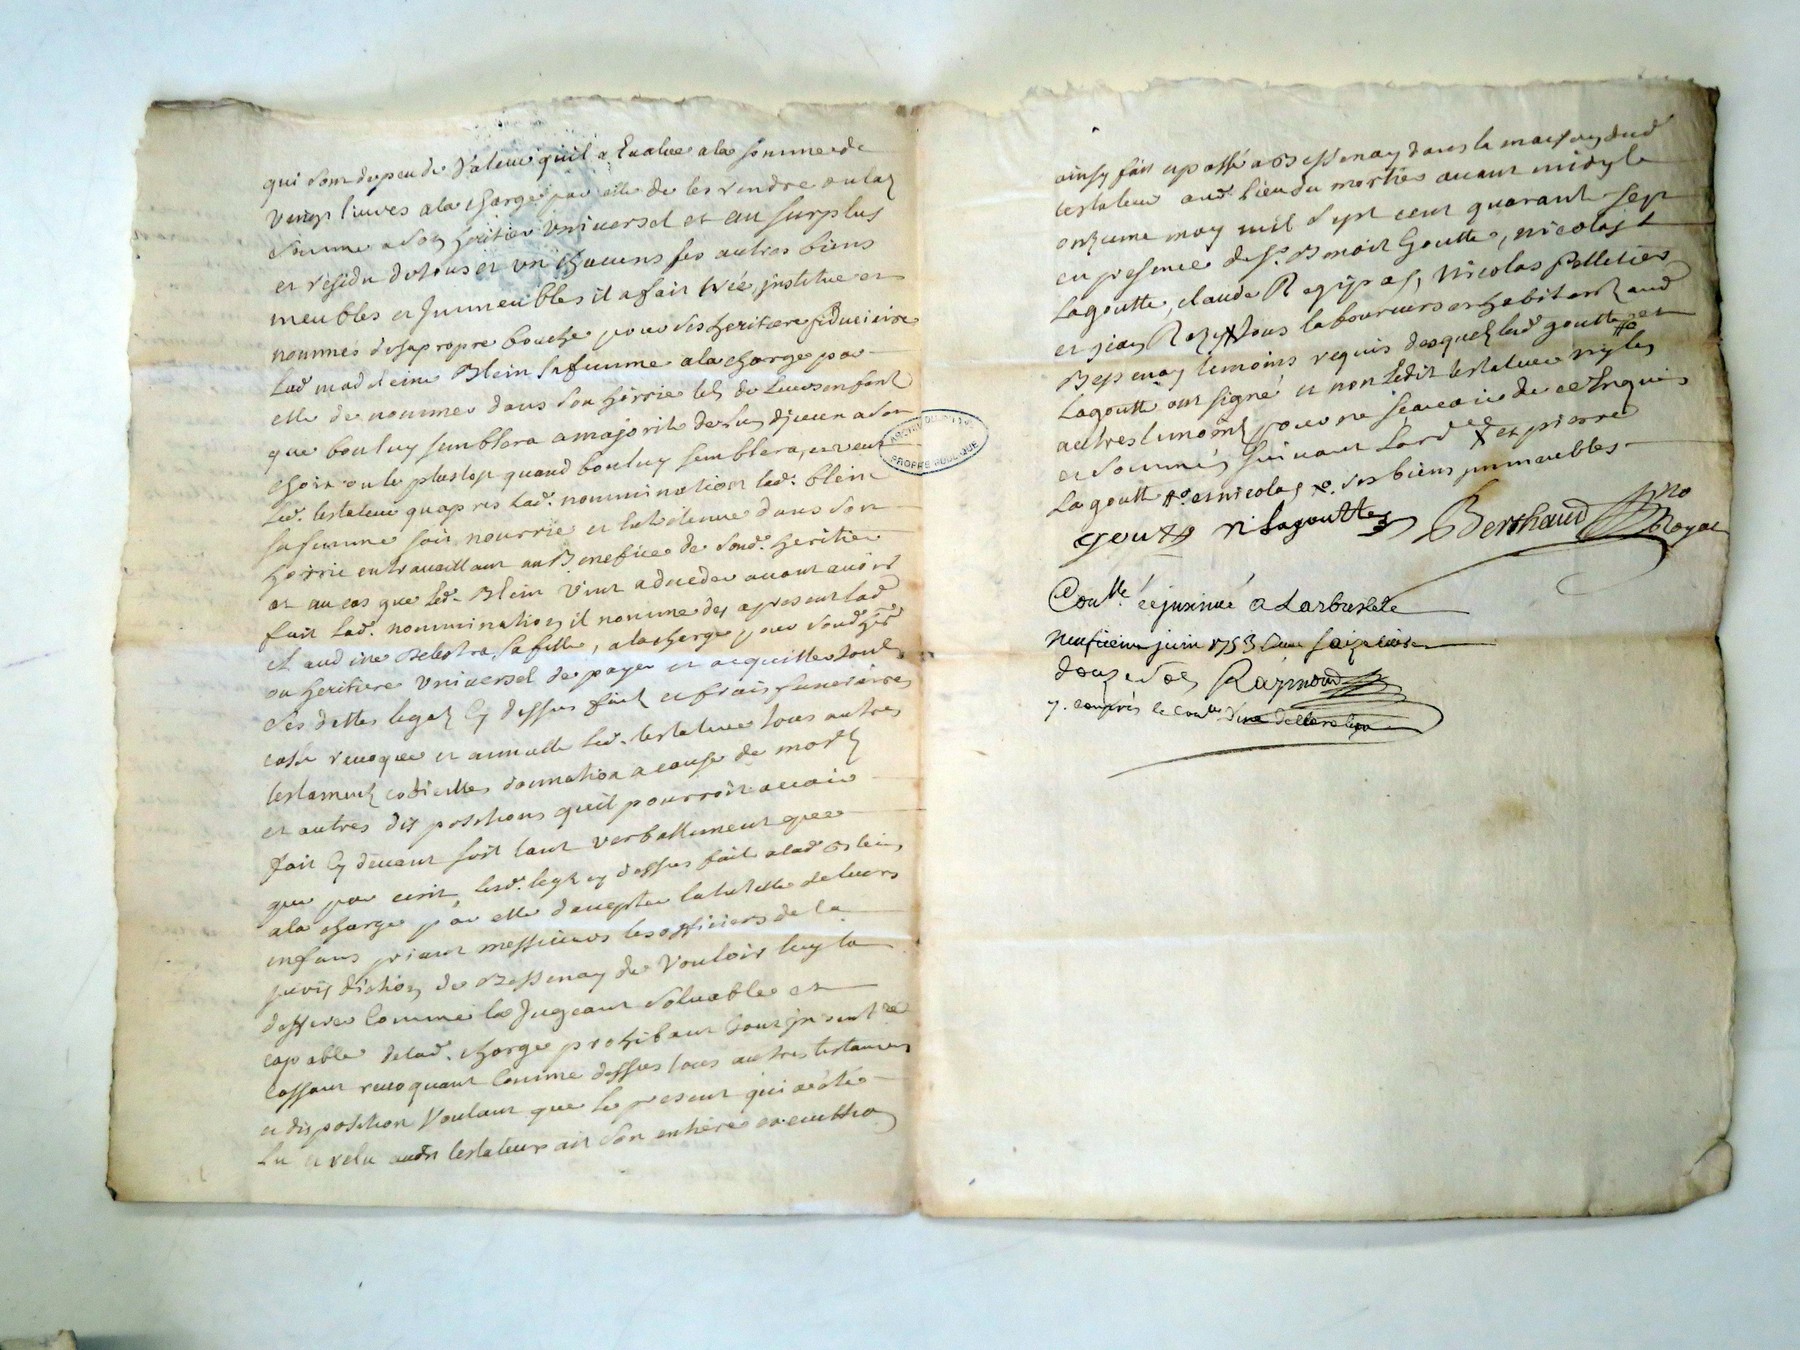 qui sont de peu de valeur qu'il a Evalué a la somme de
vingt livres a la charge par elle de les rendre ou lad
somme a son heritier universel et au surplus
et residu de tous et un chacuns ses autres biens
meubles et Immeubles il a fait créé, institué et
nommés de sa propre bouche pour ses heritiere fiduciaire
Lad madeleine Blein sa femme a la charge par
elle de nommer dans son hoirie tel de Leurs enfant
que bon luy semblera a majorité de l'un d'iceux a son
choix ou le plustot quand bon luy semblera, et veut
Led. testateur qu'apres lad. nommination lad. blein
sa femme soit nourrie et entretenue dans son
hoirie en travaillant au Benefice de sond. heritier
et au cas que lad. Blein vint a deceder avant avoir
fait Lad. nommination il nomme des apresent lad
et sa fille, a la charge pour sond. her
ou heritiere universel de payer et acquitter tout
ses dettes legat cy dessus fait et frais funeraires
casse revoque et annulle led. testateur tous autres
testament codicilles donnation a cause de mort
et autres dispositions qu'il pourroit avoir
fait cy devant soit tant verballement que
que par ecrit, led. legat cy dessus fait a lad Blein
a la charge par elle d'accepter la tutelle de leurs
enfans priant messieurs les officiers de la
jurisdiction de Bessenay de vouloir luy la
defferer comme la Jugeant solvable et
capable de lad. charge prohibant tout inventre
cassant revoquant comme dessus tous autres testament
et disposition voulant que le present qui a été
Lu et relu audit testateur ait son entiere execution
ainsy fait et passé a Bessenay dans la maison dud
testateur aud. lieu du mortier avant midy le
onzieme may mil sept cent quarant sept
en presence de Sr. Benoit Goutte, nicolas
Lagoutte, claude Ragipas, nicolas Pelletier
et jean tous laboureurs et habitant aud
Bessenay temoins requis desquels lad goutte et
Lagoutte ont signé et non ledit testateur ny les
autres temoins pour ne scavoir de ce Enquis
et sommés suivant Lord et pierre
Lagoutte et nicolas ses biens immeubles
goutte N Lagoutte Berthaud No Royal
Conlle et insinué a Larbresle
neufieme juin 1753 seize livres
douze sols Raymond
y. compris le conlle d'une declaration
ARCHIVES DEPARTEMENTALES
PROPRIETE PUBLIQUE